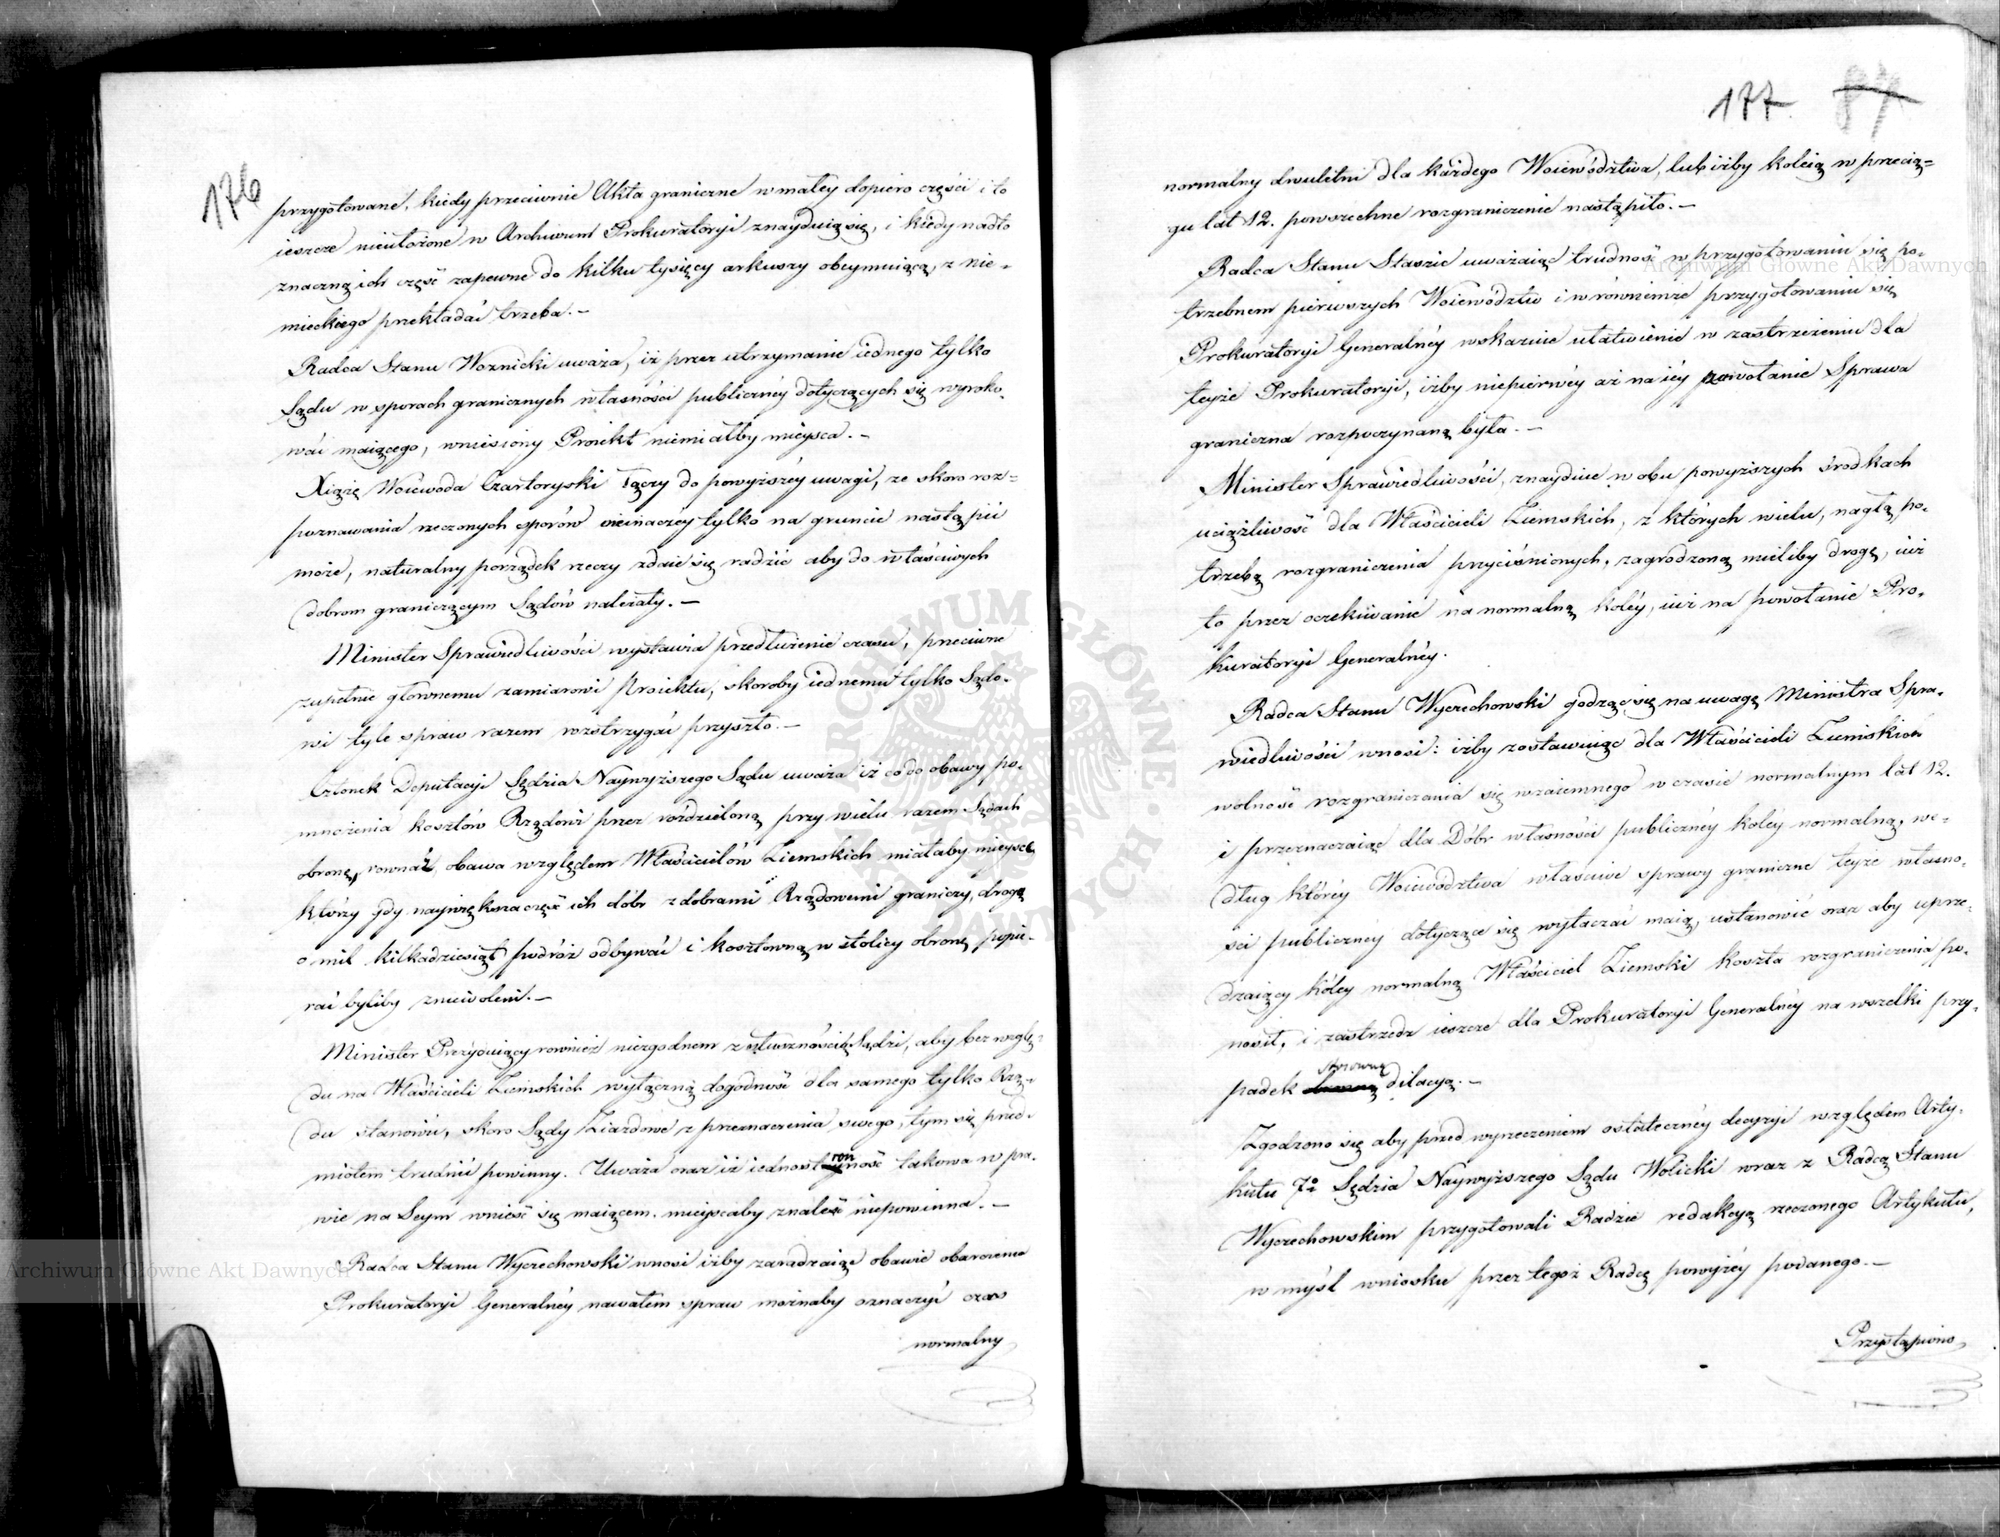 176
przygotowane, kiedy przeciwnie Akta graniczne w małey dopiero części i to
ieszcze nieułożone w Archiwum Prokuratoryi znayduią się, i kiedy nadto
znaczną ich część zapewne do kilku tysięcy arkuszy obeymuiącą, z nie-
mieckiego przekładać trzeba.-
Radca Stanu Woznicki uważa, iż przez utrzymanie iednego tylko
Sądu w sporach granicznych własności publiczney dotyczących się wyroko-
wać maiącego, wniesiony Proiekt niemiałby mieysca.-
Xiążę Woiewoda Czartoryski łączy do powyższey uwagi, że skoro roz-
poznawania rzeczonych sporów nieinaczey tylko na gruncie nastąpić
może, naturalny porządek rzeczy zdaie się radzić aby do właściwych
dobrom graniczącym Sądów należały.-
Minister Sprawiedliwości wystawia przedłużenie czasu, przeciwne
zupełnie głównemu zamiarowi Proiektu, skoroby iednemu tylko Sądo-
wi tyle spraw razem rozstrzygać przyszło.-
Członek Deputacyi Sędzia Naywyższego Sądu uważa iż co do obawy po-
mnożenia kosztów Rządowi przez rozdzieloną przy wielu razem Sądach
obronę, równaż obawa względem Właścicielów Ziemskich miałaby mieysce
którzy gdy naywiększa część ich dóbr z dobrami Rządowemi graniczy, drogę
o mil kilkadziesiąt podróż odbywać i kosztowną w stolicy obronę popie-
rać byliby zniewoleni.-
Minister Prezyduiący również niezgodnem z słusznością Sądzi, aby bez wzglę-
du na Właścicieli Ziemskich wyłączną dogodność dla samego tylko Rzą-
du stanowić, skoro Sądy Ziazdowe z przeznaczenia swego, tym się przed-
miotem trudnić powinny. Uważa oraz iż iednostronność takowa w pra-
wie na Seym wnieść się maiącem mieyscaby znaleść niepowinna.-
Radca Stanu Wyczechowski wnosi iżby zaradzaiąc obawie obarczenia
Prokuratoryi Generalney nawałem spraw możnaby oznaczyć czas
normalny
177. 87
normalny dwuletni dla każdego Woiewództwa, lub iżby koleią w przecią-
gu lat 12. powszechne rozgraniczenie nastąpiło.-
Radca Stanu Staszic uważaiąc trudność w przygotowaniu się po-
trzebnem pierwszych Woiewództw i w równiemże przygotowaniu się
Prokuratoryi Generalney wskazuie ułatwienie w zastrzeżeniu dla
teyże Prokuratoryi, iżby niepierwéy aż na iéy powołanie Sprawa
graniczna rozpoczynaną była.-
Minister Sprawiedliwości, znayduie w obu powyższych środkach
uciążliwość dla Właścicieli Ziemskich, z których wielu, nagłą po-
trzebą rozgraniczenia przyciśnionych, zagrodzoną mieliby drogę, iuż
to przez oczekiwanie na normalną koléy, iuż na powołanie Pro-
kuratoryi Generalnéy.
Radca Stanu Wyczechowski godząc się na uwagę Ministra Spra-
wiedliwości wnosi: iżby zostawuiąc dla Właścicieli Ziemskich
wolność rozgraniczania się wzaiemnego w czasie normalnym lat 12.
i przeznaczaiąc dla Dóbr własności publicznéy koléy normalną, we-
dług któréy Woiewództwa właściwe sprawy graniczne teyże własno-
ści publicznéy dotyczące się wytaczać maią, ustanowić oraz aby uprze-
dzaiący koléy normalną Właściciel Ziemski koszta rozgraniczenia po-
nosił, i zastrzedz ieszcze dla Prokuratoryi Generalnéy na wszelki przy-
padek stosowną dilacyą.-
Zgodzono się aby przed wyrzeczeniem ostatecznéy decyzyi względem Arty-
kułu 7o Sędzia Naywyższego Sądu Wolicki wraz z Radcą Stanu
Wyczechowskim przygotowali Radzie redakcyą rzeczonego Artykułu,
w myśl wniosku przez tegoż Radcę powyżéy podanego.-
Przystąpiono
Archiwum Główne Akt Dawnych
Archiwum Główne Akt Dawnych
ARCHIWUM GŁÓWNE AKT DAWNYCH